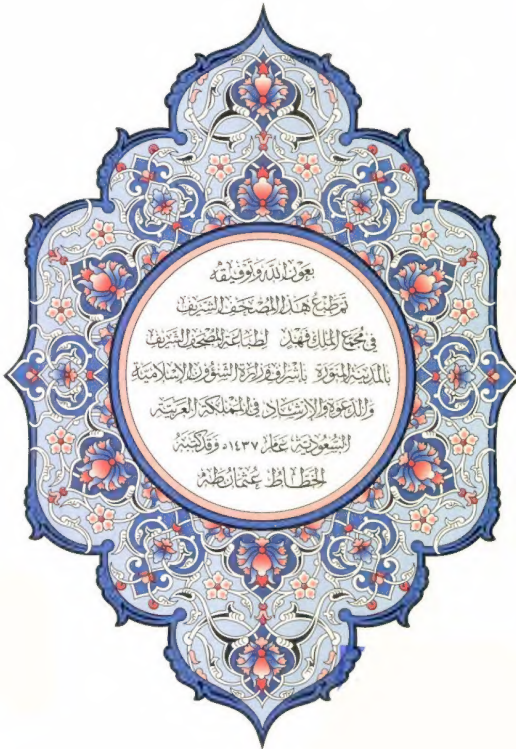 بعون الله وتوفيقه
تم طبع هذا المصحف الشريف
في مجمع الملك فهد لطباعة المصحف الشريف
بالمدينة المنورة بإشراف وزارة الشؤون الإسلامية
والدعوة والإرشاد في المملكة العربية
السعودية عام ١٤٣٧ه وقد كتبه
الخطاط عثمان طه